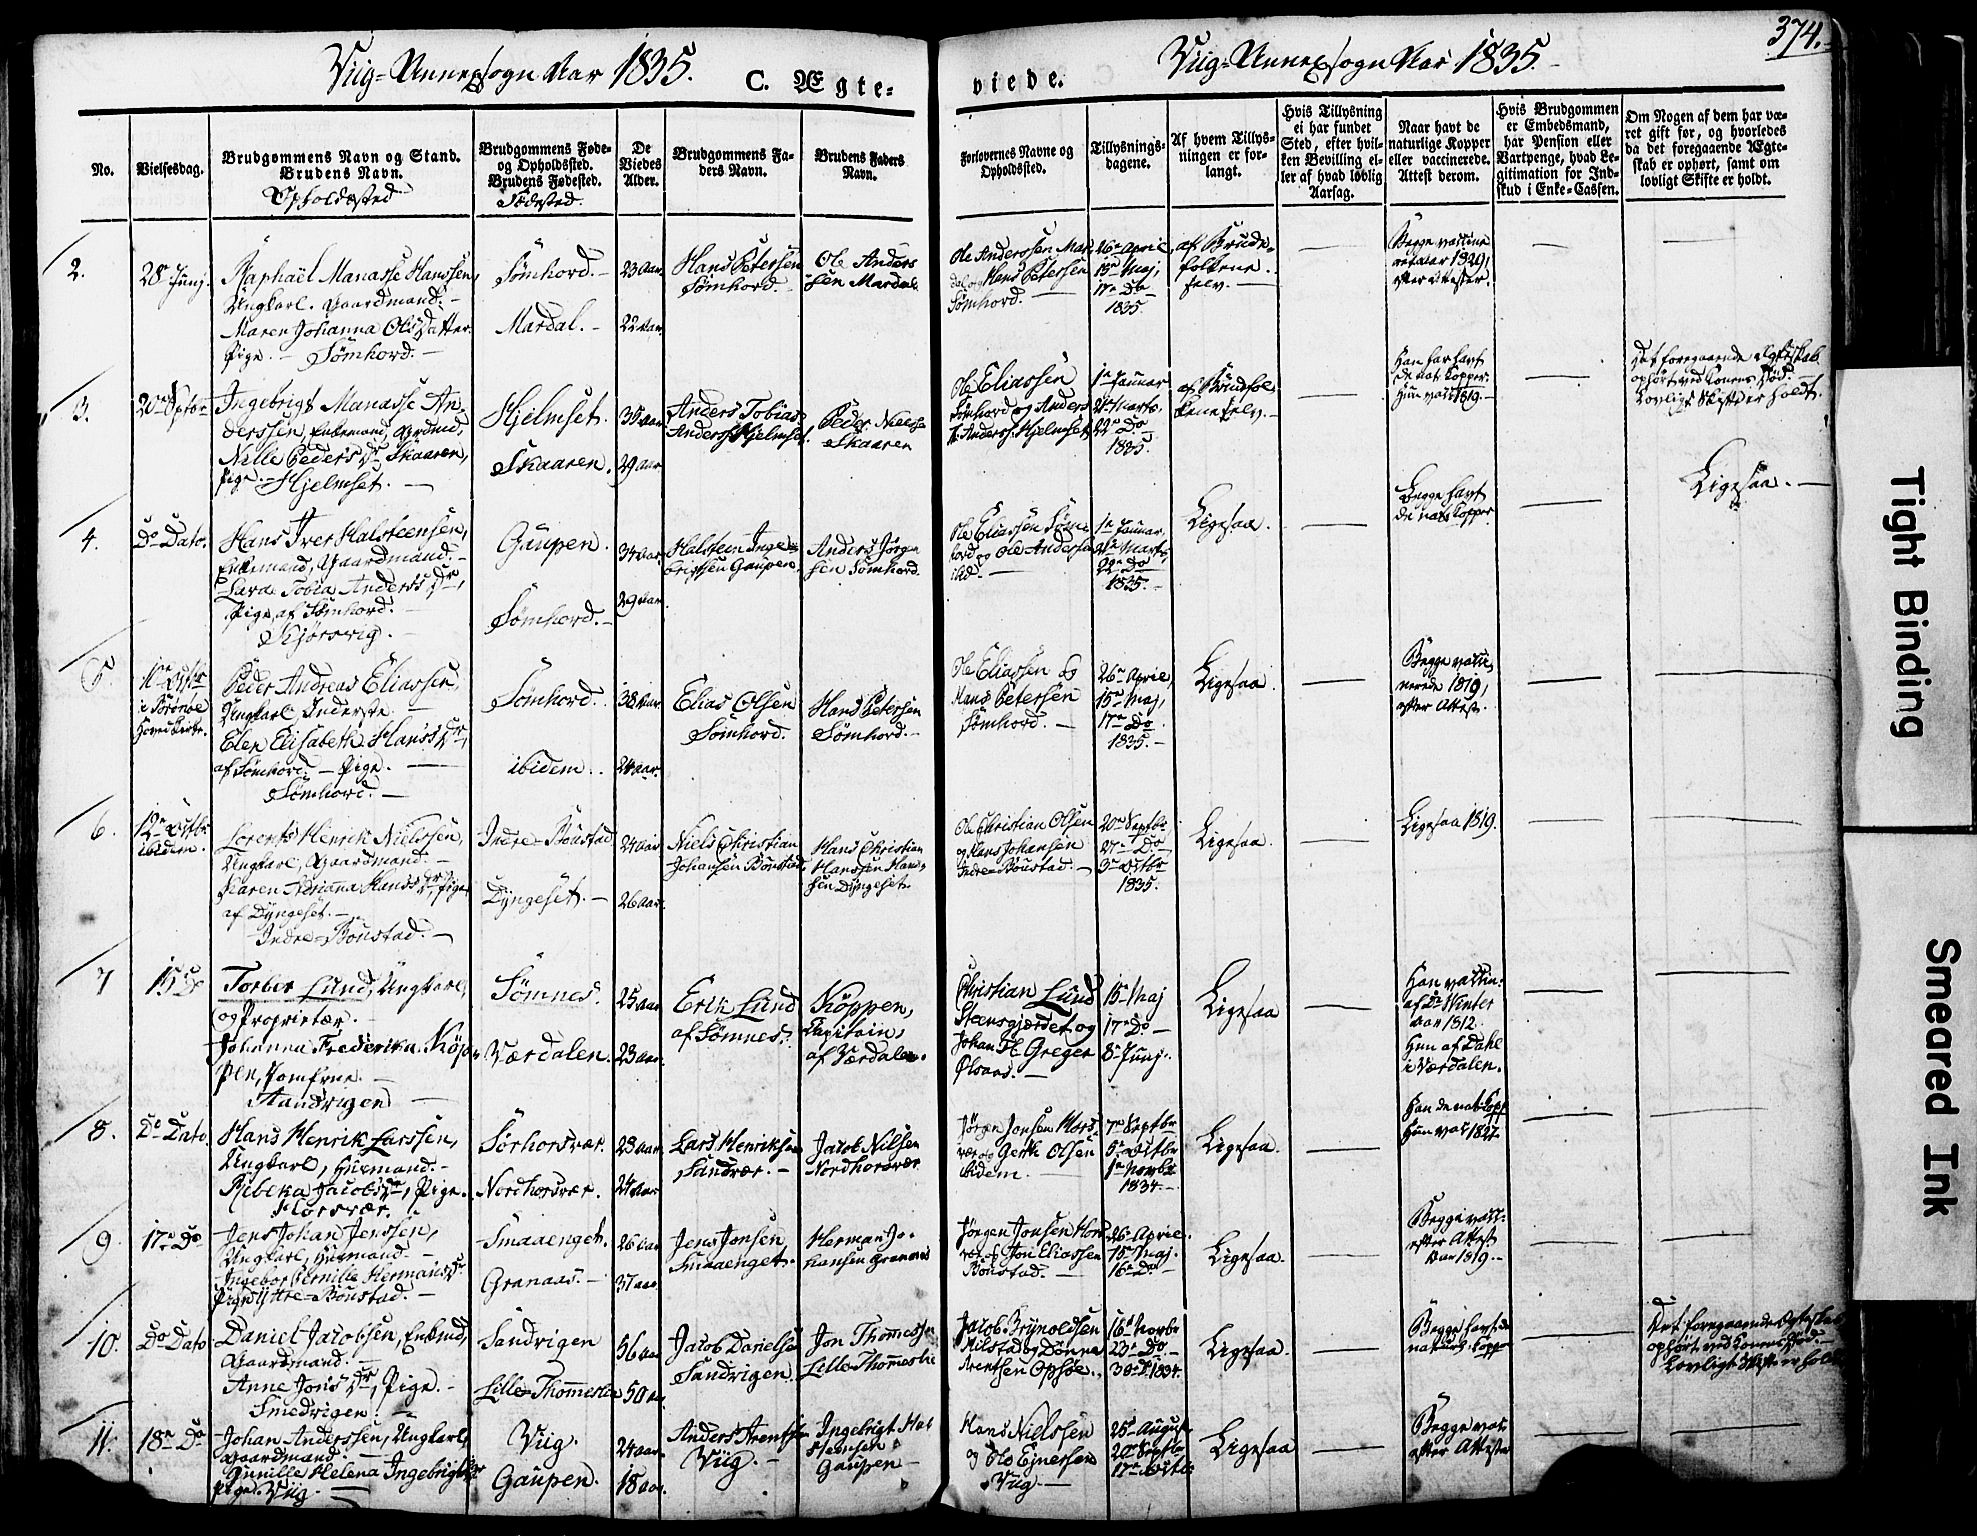 374.
Viig-Annexsogn Aar 1835.
C. Ægte-
Viig-Annexsogn Aar 1835.
viede.
No.
Vielsesdag.
Brudgommens Navn og Stand.
Brudens Navn.
Opholdssted
Brudgommens Føde-
og Opholdssted.
Brudens Fødested.
Fødested.
De
Viedes
Alder.
Brudgommens Fa-
ders Navn.
Brudens Faders
Navn.
Forlovernes Navne og
Opholdssted.
Tillysnings-
dagene.
Af hvem Tillys-
ningen er for-
langt.
Hvis Tillysning
ei har fundet
Sted, efter hvil-
ken Bevilling el-
ler af hvad lovlig
Aarsag.
Naar havt de
naturlige Kopper
eller vaccinerede.
Attest derom.
Hvis Brudgommen
er Embedsmand,
har Pension eller
Vartpenge, hvad Le-
gitimation for Ind-
skud i Enke-Cassen.
Om Nogen af dem har væ-
ret gift før, og hvorledes
da det foregaaende Ægte-
skab er ophørt, samt om
lovligt Skifte er holdt.
2.
28de Junj.
Raphaël Manasse Hanssen,
Ungkarl. Gaardmand.
Maren Johanna Ols Datter
Pige. — Sømhord. —
Sømhord. —
Mardal. —
23 Aar.
22 Aar.
Hans Petersen
Sømhord.
Ole Anders
sen Mardal.
Ole Anderssen Mar
dal og Hans Petersen
Sømhord. —
26de April,
15de Maj,
17de Do
1835.
af Brude-
folkene
selv.
Begge vaccine
rede aar 1829,
efter Attester.
3.
20de Septbr.
Ingebrigt Manasse An-
derssen, Enkemand, Grdmd,
Nille Peders Dr Skaaren,
Pige. — Hjelmset. —
Hjelmset.
Skaaren.
35 Aar
29 Aar
Anders Tobias
Anderss. Hjelmset.
Peder Nielsen
Skaaren
Ole Eliassen
Sømhord og Anders
T. Anderss. Hjelmset
1de Januar
21de Marts.
22de Do
1835.
af Brudefol
kene selv. —
Han har havt
de nat. Kopper.
Hun vacc 1819. —
Det foregaaende Ægteskab
ophørt ved Konens Død.
Lovligt Skifte er holdt.
4.
Do Dato.
Hans Iver Halsteensen,
Enkemand, Gaardmand. —
Sara Tobia Anders Dr,
Pige af Sømhord. —
Skjørvig.
Gaupen.
Sømhord. —
34 Aar
29 Aar
Halsteen Inge-
brigtsen Gaupen.
Anders Jørgen
sen Sømhord.
Ole Eliassen Søm
hord og Ole Anderssen
ibid. —
1de Januar
21de Marts,
22de Do
1835. —
Ligesaa.
Begge havt
de nat. Kopper
Ligesaa. —
5.
i Brønøe
Hoved Kirke.
Peder Andreas Eliassen,
Ungkarl Inderste. —
Elen Elisabeth Hans Dr,
af Sømhord. — Pige. —
Sømhord. —
Sømhord. —
ibidem.
38 Aar
24 Aar.
Elias Olsen
Sømhord.
Hans Petersen
Sømhord. —
Ole Eliassen og
Hans Petersen
Sømhord. —
26de April,
15de Maj,
17de Do
1835. —
Ligesaa.
Begge vacci
nerede 1819,
efter Attest.
6.
12te Octbr
ibidem.
Lorents Henrik Nielssen,
Ungkarl, Gaardmand. —
Karen Adriana Hans Dr, Pige
af Dyngeset. —
Indre-Boustad. —
Indre Boustad
Dyngeset. —
24 Aar
26 Aar.
Niels Christian
Johansen Boustad.
Hans Christian
Hanssen Hans-
sen Dyngeset.
Ole Christian Olsen
og Hans Johansen
Indre-Boustad. —
20de Septbr
27de Do
3de Octbr
1835.
Ligesaa.
Ligesaa 1819.
7
15de Do
Torber Lund, Ungkarl,
og Proprietær.
Johanna Frederika Køp-
pen, Jomfrue. —
Sandvigen —
Sømnes.
Værdalen.
25 Aar.
23 Aar.
Erik Lund
af Sømnes.
Køppen,
Capitain,
af Værdalen.
Christian Lund
Steensgjærdet og
Johan Fr. Greger
15de Maj
17de Do —
8de Junj.
Ligesaa
Han vaccin:
af Dr Winter
aar 1812.
Hun af Dahl
i Værdalen.
8.
Do Dato.
Hans Henrik Larssen,
Ungkarl, Huusmand. —
Rebeka Jacobs Dr, Pige.
Horsvær.
Sørhorsvær.
Nordhorsvær.
23 Aar.
24 Aar.
Lars Henriksen
Sandvær. —
Jacob Nilsen
Nordhorsvær
Jørgen Jonsen Hors-
vær og Gerh. Olsen
ibidem. —
7de Septbr
5te Octbr
1de Novbr
1834. —
Ligesaa.
Han de nat. Kopp
Hun vac 1827.
9
17de Do
Jens Johan Jenssen,
Ungkarl, Huusmand. —
Ingebor Pernille Hermans Dr
Pige Yttre-Boustad. —
Smaaenget.
Granaas. —
26 Aar
37 Aar.
Jens Jonsen
Smaaenget.
Herman Jo-
hansen Granaas
Jørgen Jonsen Hors
vær og Jon Eliassen
Boustad. —
26de April.
15de Maj.
16de Do.
Ligesaa.
Begge vacc:
efter Attest
Aar 1819. —
10.
Do Dato
Daniel Jacobsen, Enkemd,
Gaardmand. —
Anne Jons Dr, Pige. —
Smedvigen. —
Sandvigen
Lille-Thommeslie
56 Aar
50 Aar
Jacob Danielsen
Sandvigen.
Jon Thomessen
Lille-Thommeslie
Jacob Brynoldsen
Milstad og Dønne
Arentsen Opsøe.
16de Novbr
23de Do. —
30de Do 1834.
Ligesaa.
Begge havt de
naturl. Kopper
Det foregaaende Ægteskab
ophørt ved Konens Død.
Lovligt Skifte er holdt
11.
18de Do
Johan Anderssen, Ungkarl,
Gaardmand. —
Gunille Helena Ingebrigts Dr
Pige. Viig. —
Viig.
Gaupen.
24 Aar
18 Aar.
Anders Arentsen
Viig. —
Ingebrigt Hal
steensen
Gaupen —
Hans Nielssen
og Ole Ejnersen
Viig —
25de August
20de Septbr
17de Octbr
Ligesaa
Begge vacc
efter Attester
Tight Binding
Smeared Ink